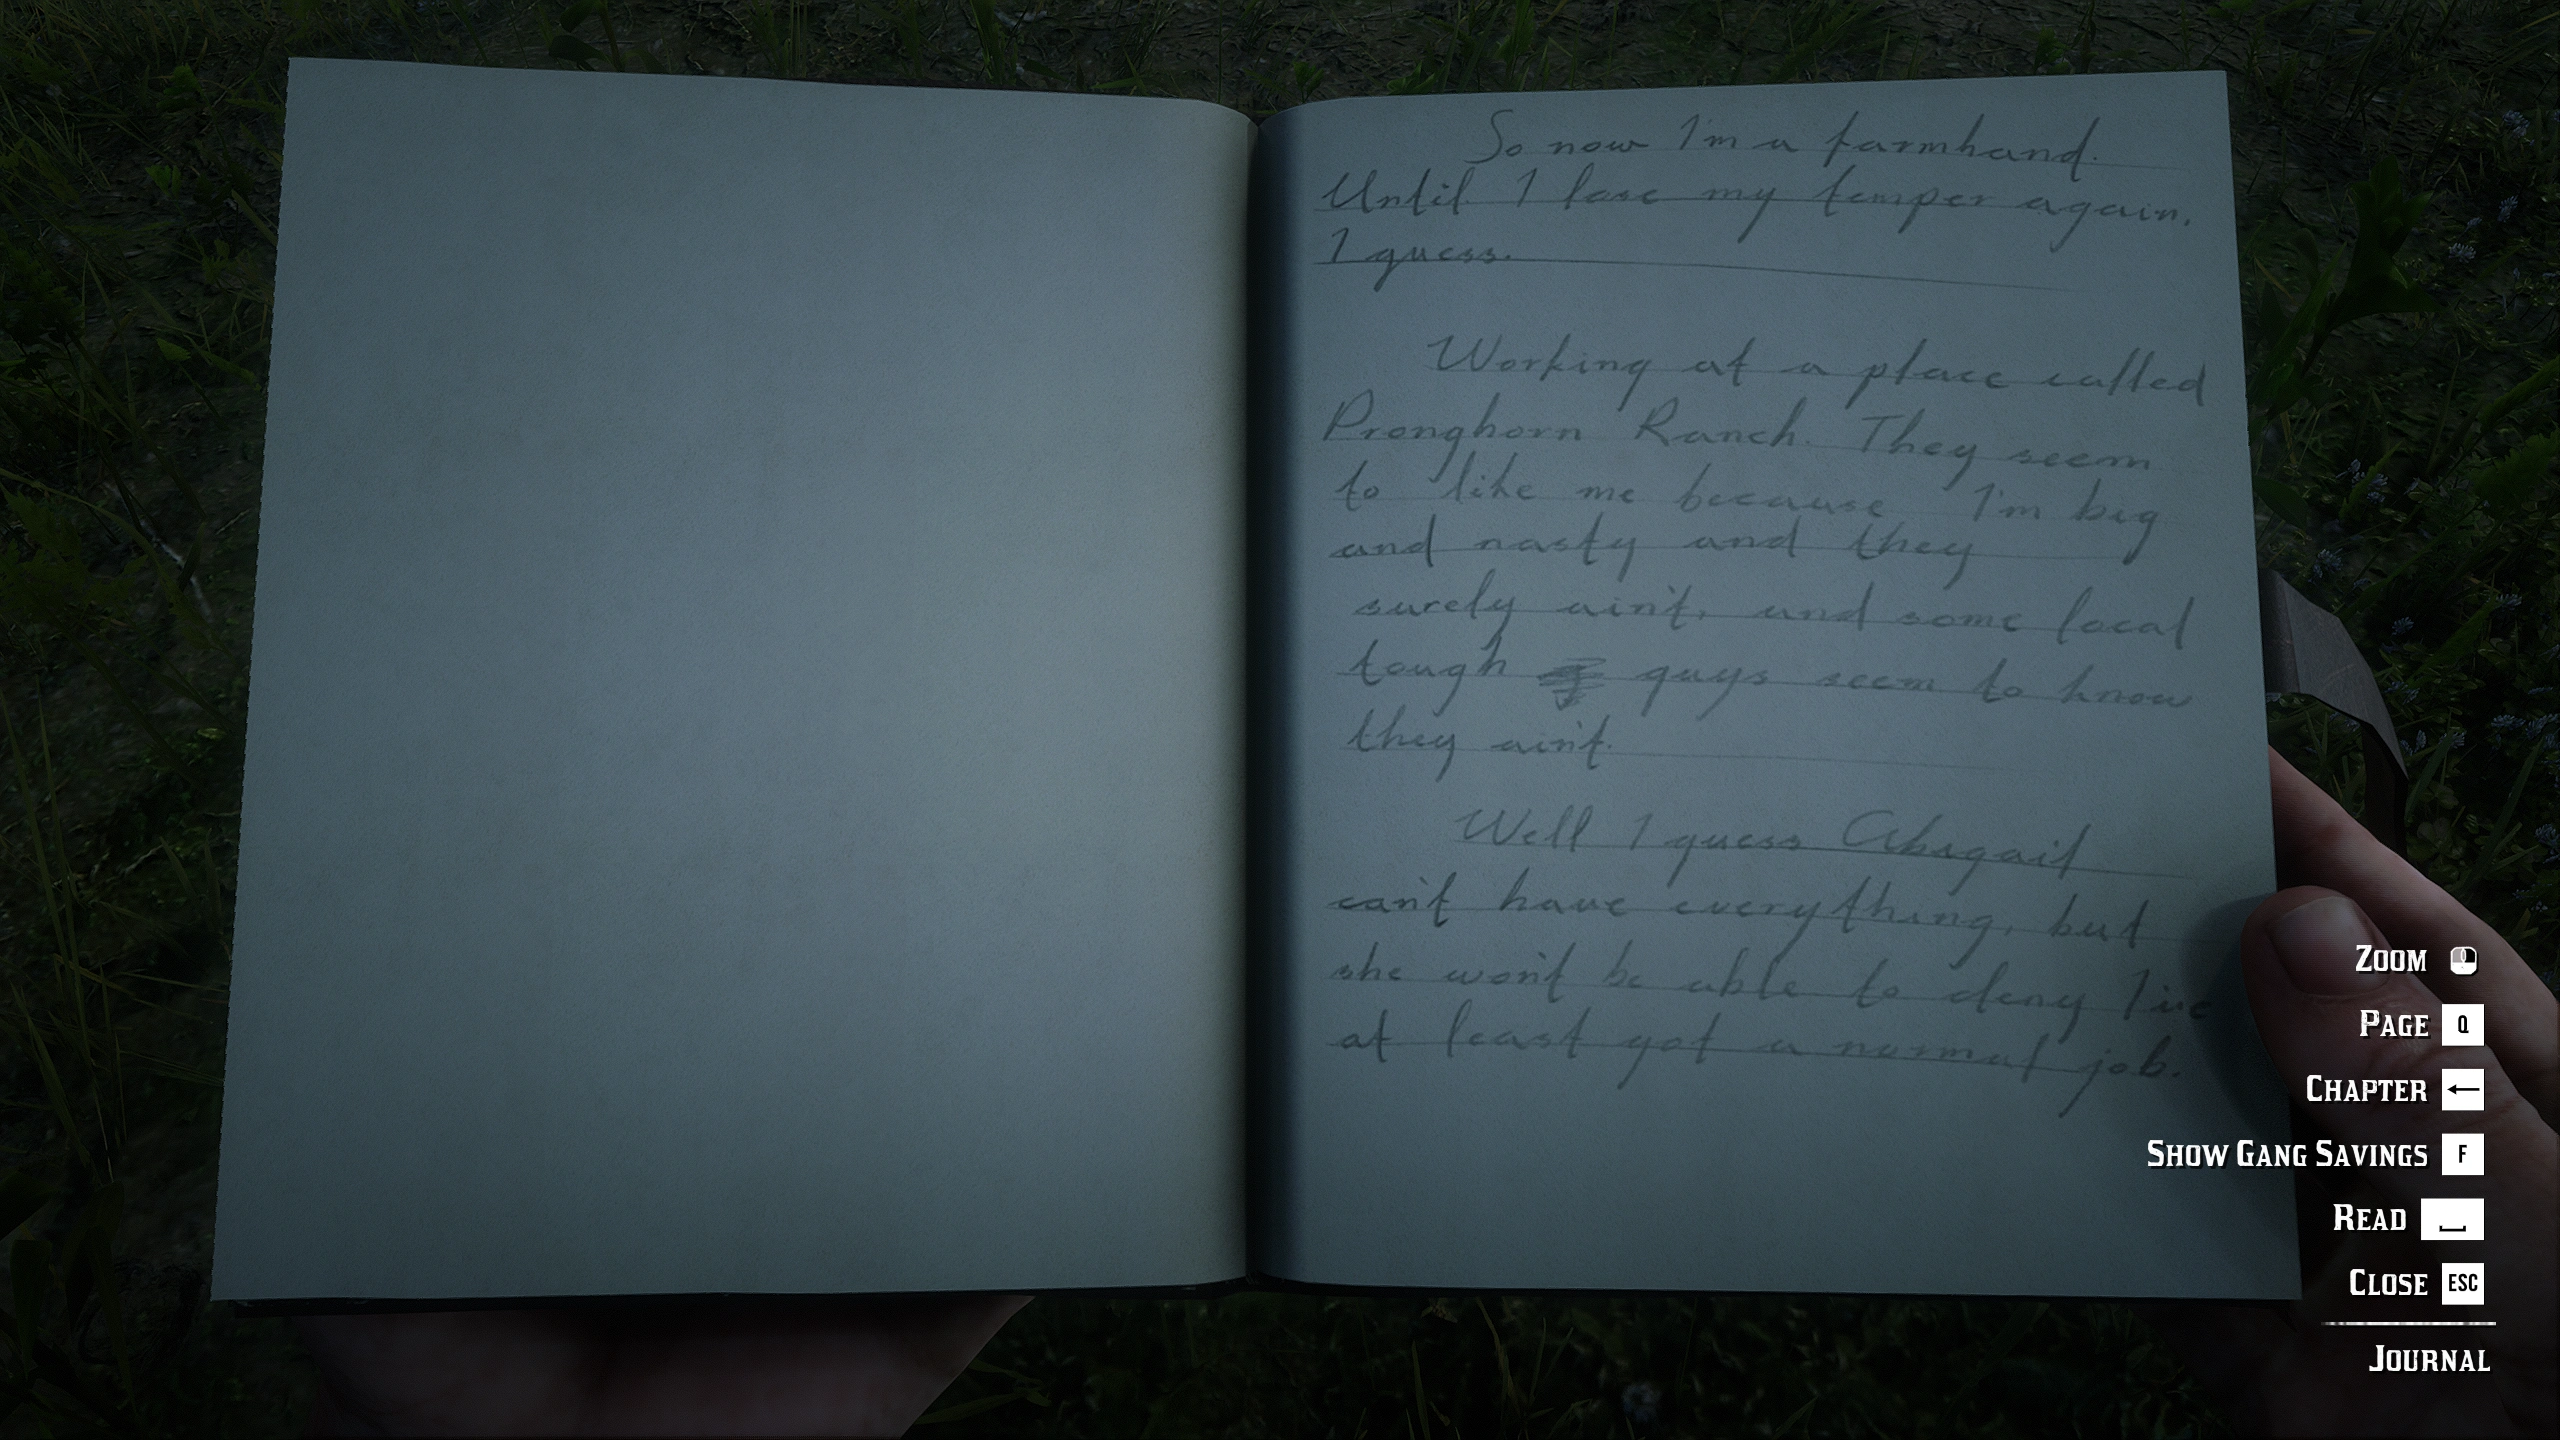 So now I'm a farmhand.
Until I lose my temper again.
I guess.
Working at a place called
Pronghorn Ranch. They seem
to like me because I'm big
and nasty and they
surely ain't, and some local
tough guys seem to know
they ain't.
Well I guess Abigail
can't have everything, but
she won't be able to deny I've
at least got a normal job.
ZOOM
PAGE Q
CHAPTER ←
SHOW GANG SAVINGS F
READ
CLOSE ESC
JOURNAL